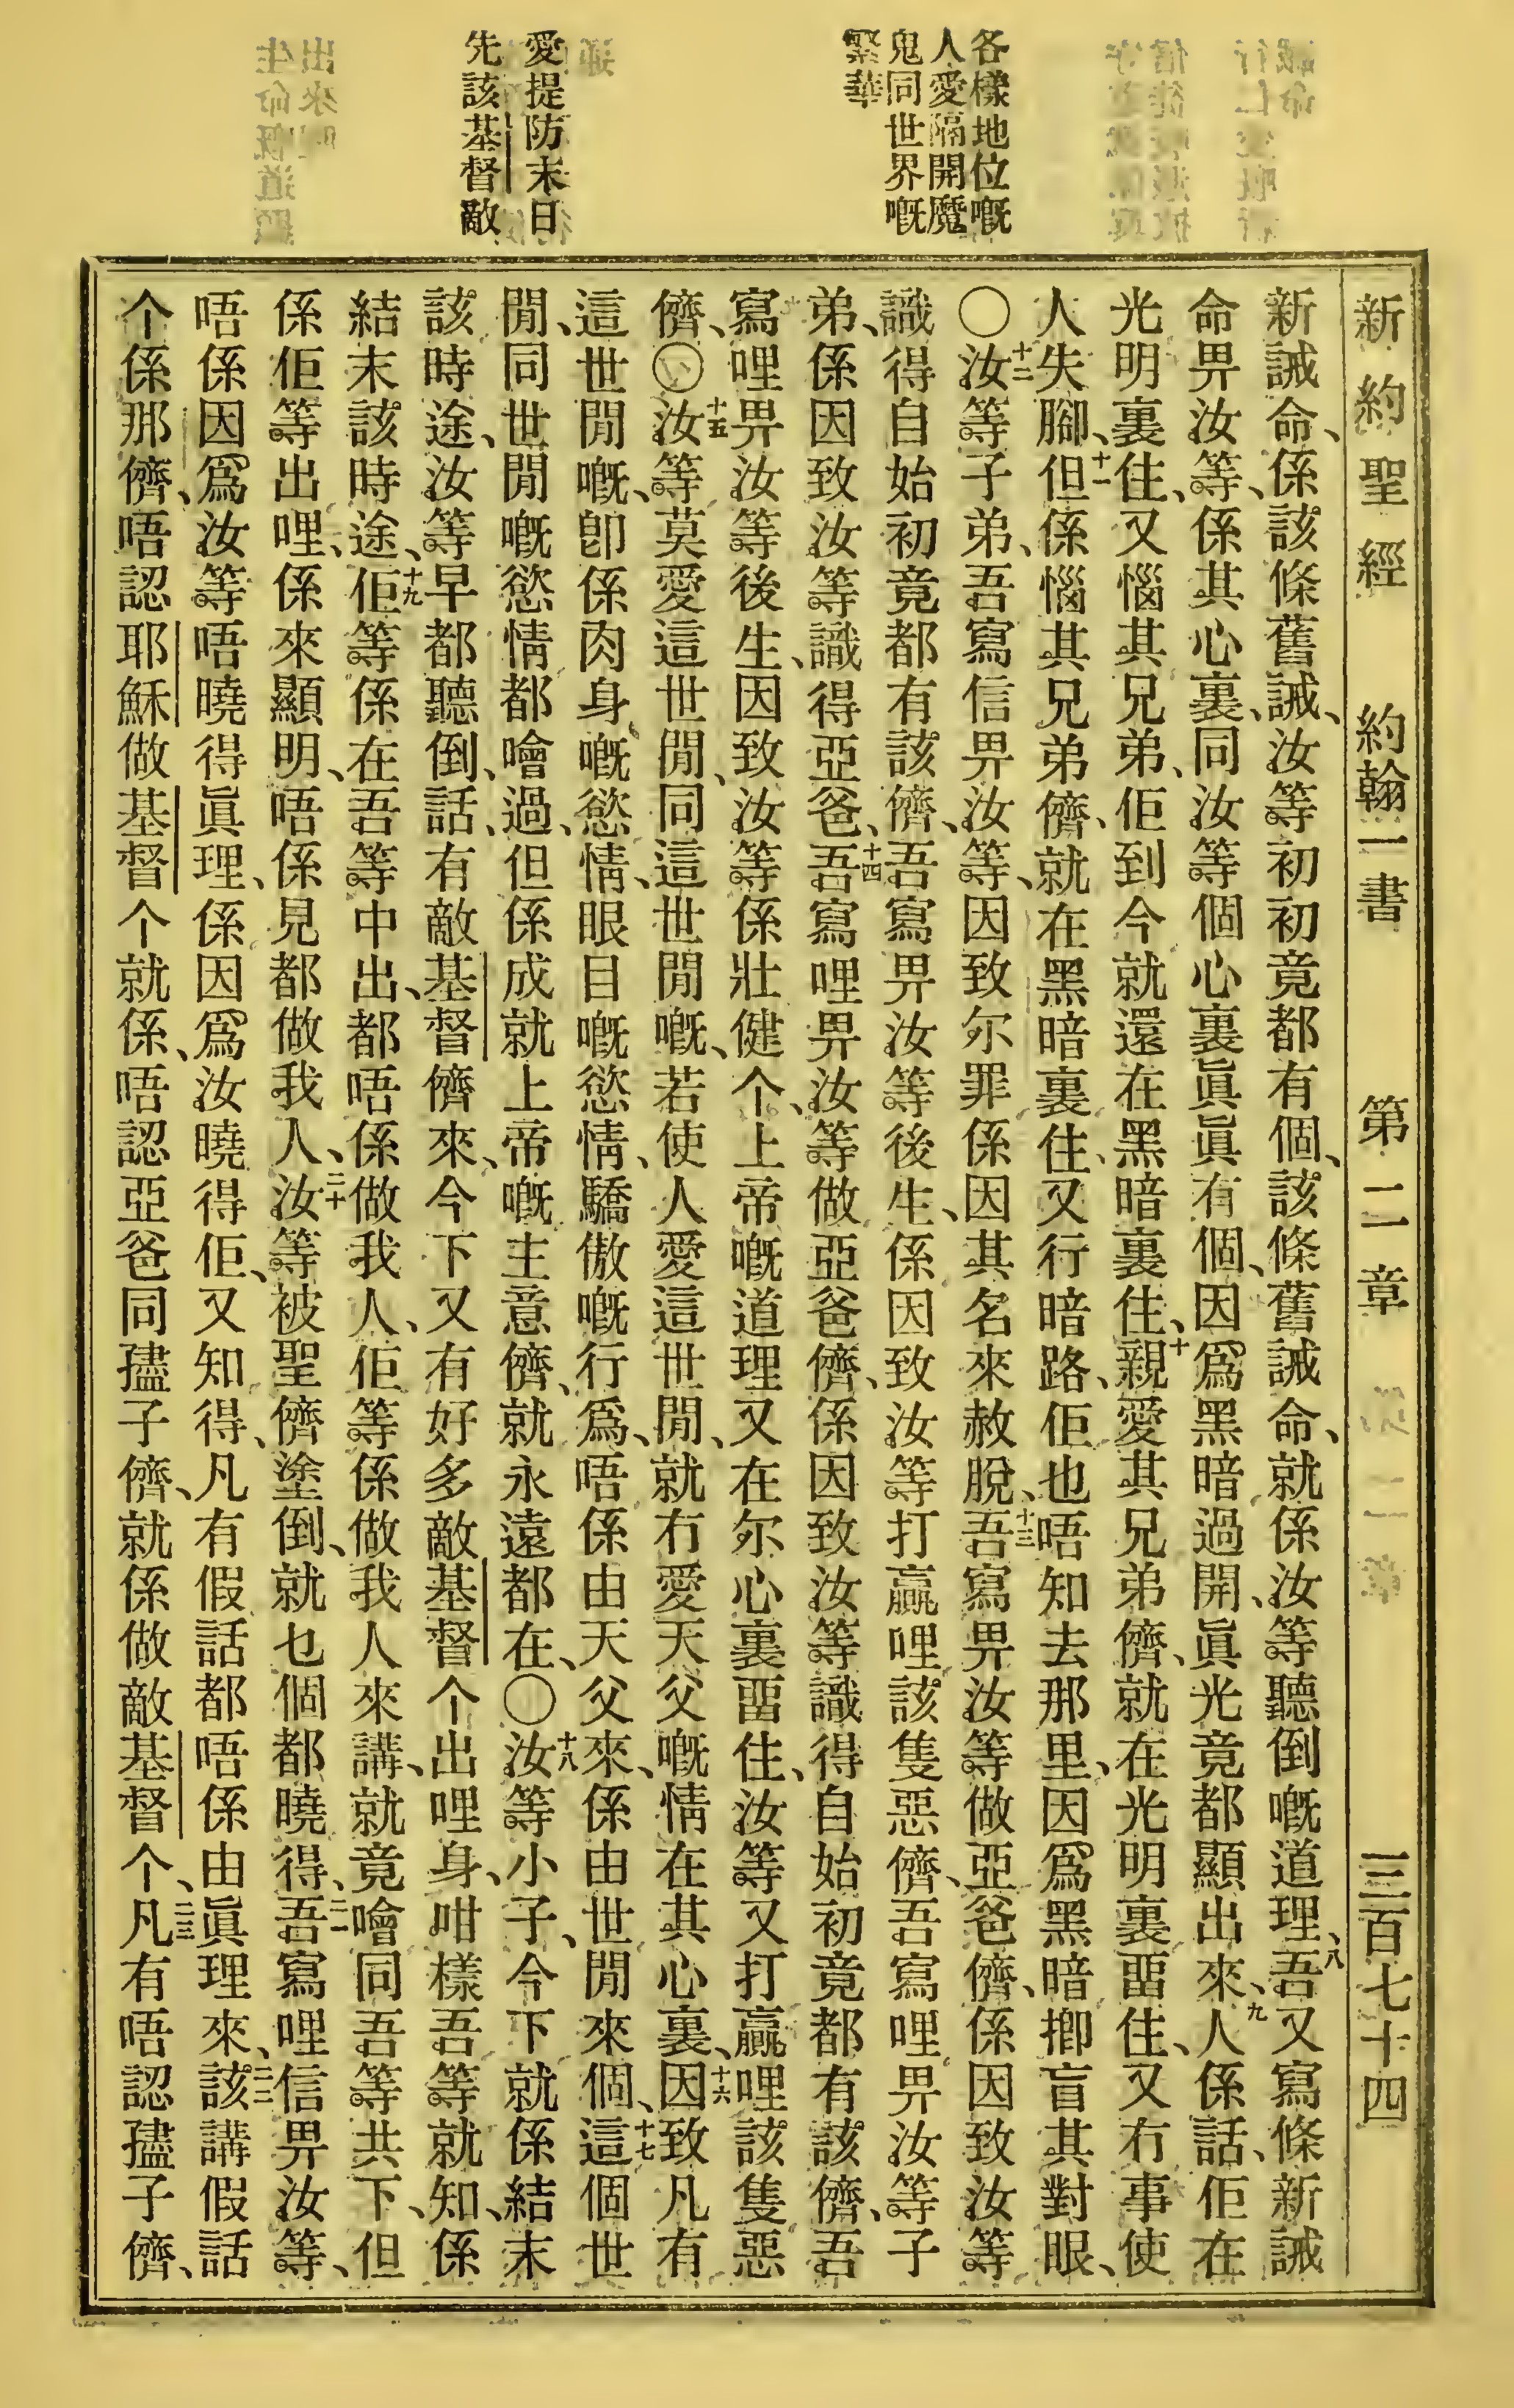 各樣地位嘅
人愛隔開魔
鬼同世界嘅
緊華
愛提防末日
先該基督敵
新約聖經 約翰一書 第二章 三百七十四
新誡命、係該條舊誡、汝等初初竟都有個、該條舊誡命、就係汝等聽倒嘅道理、八吾又寫條新誡
命畀汝等、係其心裏、同汝等個心裏眞眞有個、因爲黑暗過開、眞光竟都顯出來、九人係話、佢在
光明裏住、又惱其兄弟、佢到今就還在黑暗裏住、十親愛其兄弟儕、就在光明裏畱住、又冇事使
人失腳、十一但係惱其兄弟儕、就在黑暗裏住、又行暗路、佢也唔知去那里、因爲黑暗㧬盲其對眼、
〇十二汝等子弟、吾寫信畀汝等、因致尔罪係因其名來赦脫、十三吾寫畀汝等做亞爸儕、係因致汝等
識得自始初竟都有該儕、吾寫畀汝等後生、係因致汝等打贏哩該隻惡儕、吾寫哩畀汝等子
弟、係因致汝等識得亞爸、十四吾寫哩畀汝等做亞爸儕、係因致汝等識得自始初竟都有該儕、吾
寫哩畀汝等後生、因致汝等係壯健个、上帝嘅道理又在尔心裏畱住、汝等又打贏哩該隻惡
儕、〇十五汝等莫愛這世閒、同這世閒嘅、若使人愛這世閒、就冇愛天父嘅情在其心裏、十六因致凡有
這世閒嘅、卽係肉身嘅慾情、眼目嘅慾情、驕傲嘅行爲、唔係由天父來、係由世閒來個、十七這個世
閒、同世閒嘅慾情都噲過、但係成就上帝嘅主意儕、就永遠都在、〇十八汝等小子、今下就係結末
該時途、汝等早都聽倒、話、有敵基督儕來、今下又有好多敵基督个出哩身、咁樣吾等就知、係
結末該時途、十九佢等係在吾等中出、都唔係做我人、佢等係做我人來講、就竟噲同吾等共下、但
係佢等出哩、係來顯明、唔係見都做我人、二十汝等被聖儕塗倒、就乜個都曉得、二一吾寫哩信畀汝等、
唔係因爲汝等唔曉得眞理、係因爲汝曉得佢、又知得、凡有假話都唔係由眞理來、二二該講假話
个係那儕、唔認耶穌做基督个就係、唔認亞爸同孻子儕、就係做敵基督个、二三凡有唔認孻子儕、